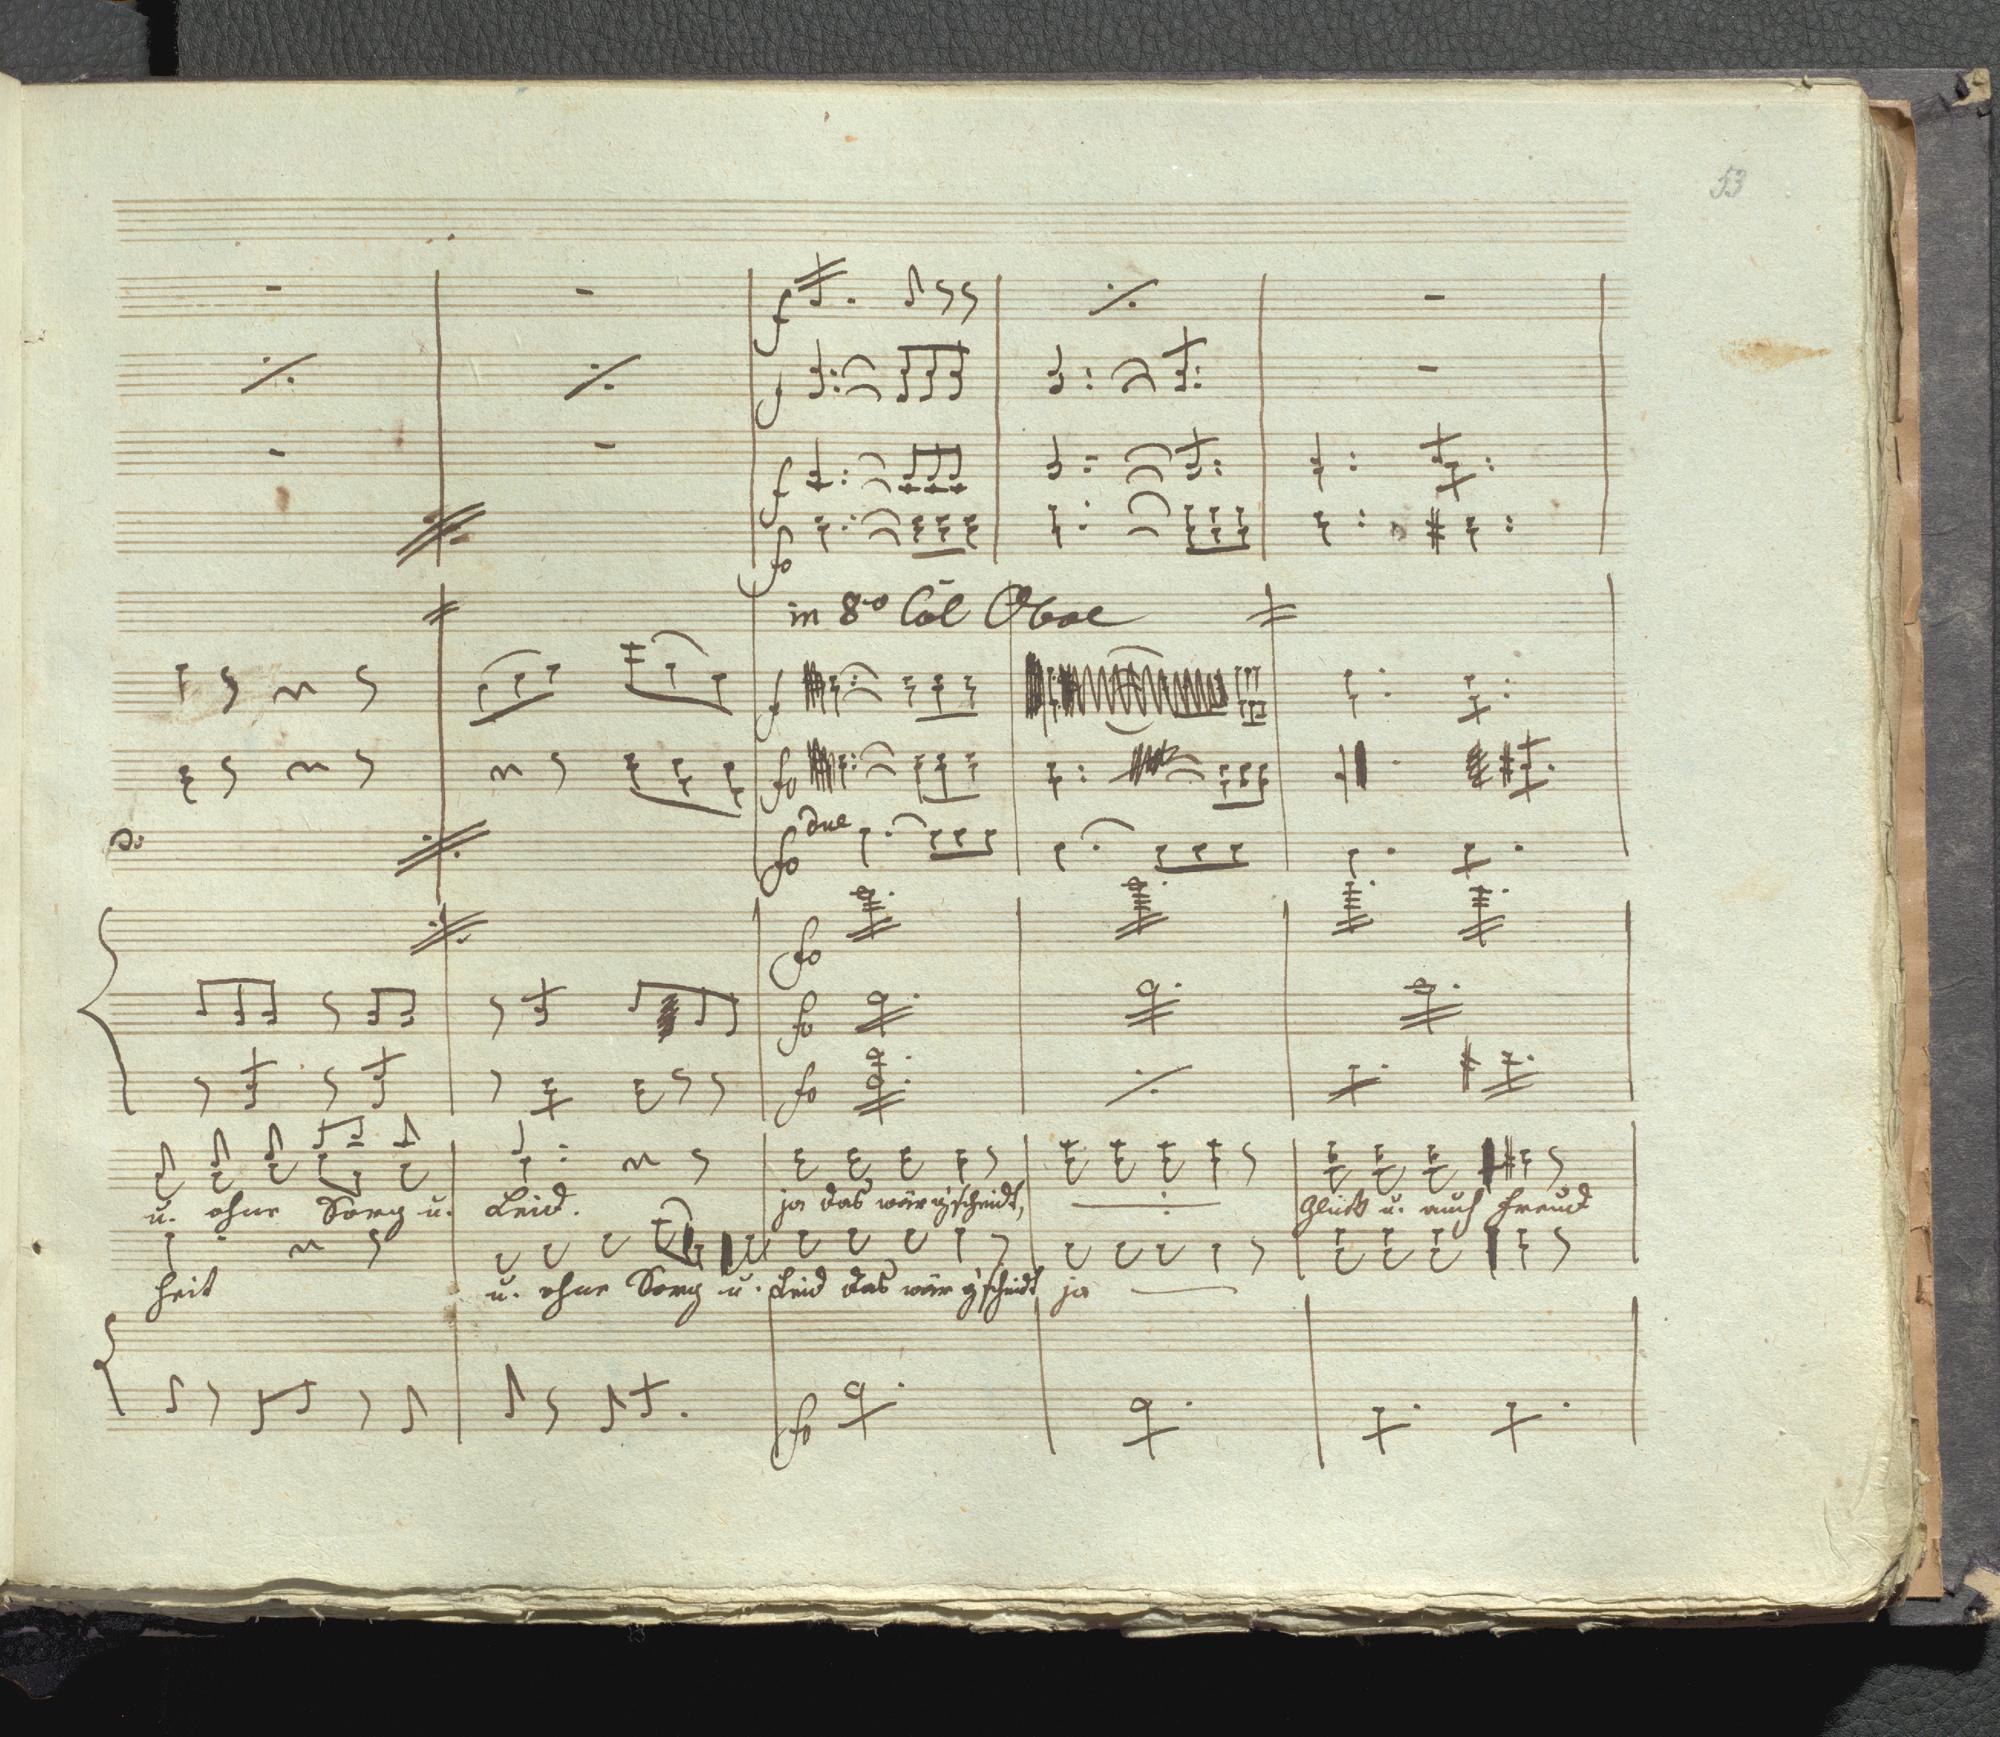 53
f
f
f
fo
in 8vo Col Oboe
f
fo
fo due
fo
fo
fo
u. ohne Sorg u. Leid. ja das wär g'scheidt, Glück u. auch Freud
heit u. ohne Sorg u. Leid das wär g'scheidt ja
fo